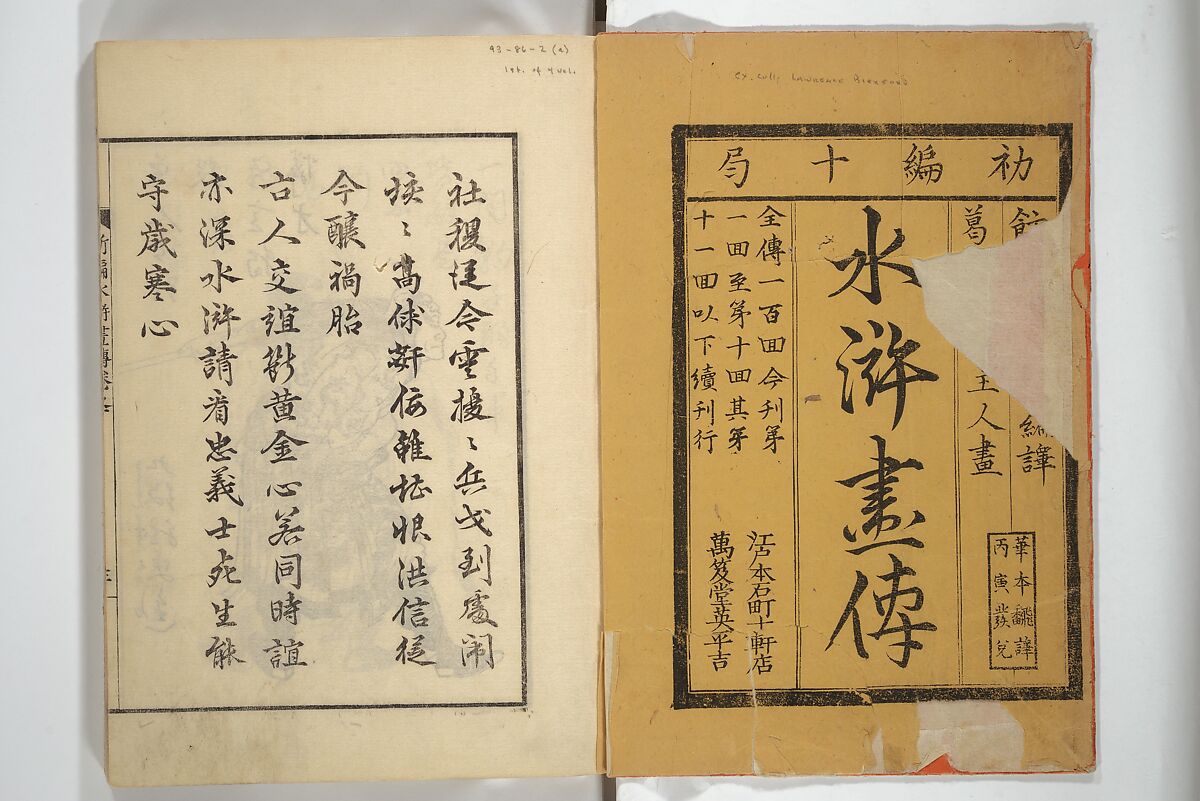 93-86-2 (a)
1st. of 9 vol.
ex. coll. LAWRENCE
初編十局
編譯
葛
王人畫
華本飜譯
丙寅發兌
水滸畫傳
全傳一百回今刊第
一回至第十回其第
十一回以下續刊行
江戸本石町十軒店
萬笈堂英平吉
社稷從今雲擾〻兵戈到處鬧
垓〻高俅奸佞雖堪恨洪信從
今釀禍胎
古人交誼斷黄金心若同時誼
亦深水滸請看忠義士死生能
守歲寒心
新編水滸畫傳卷之